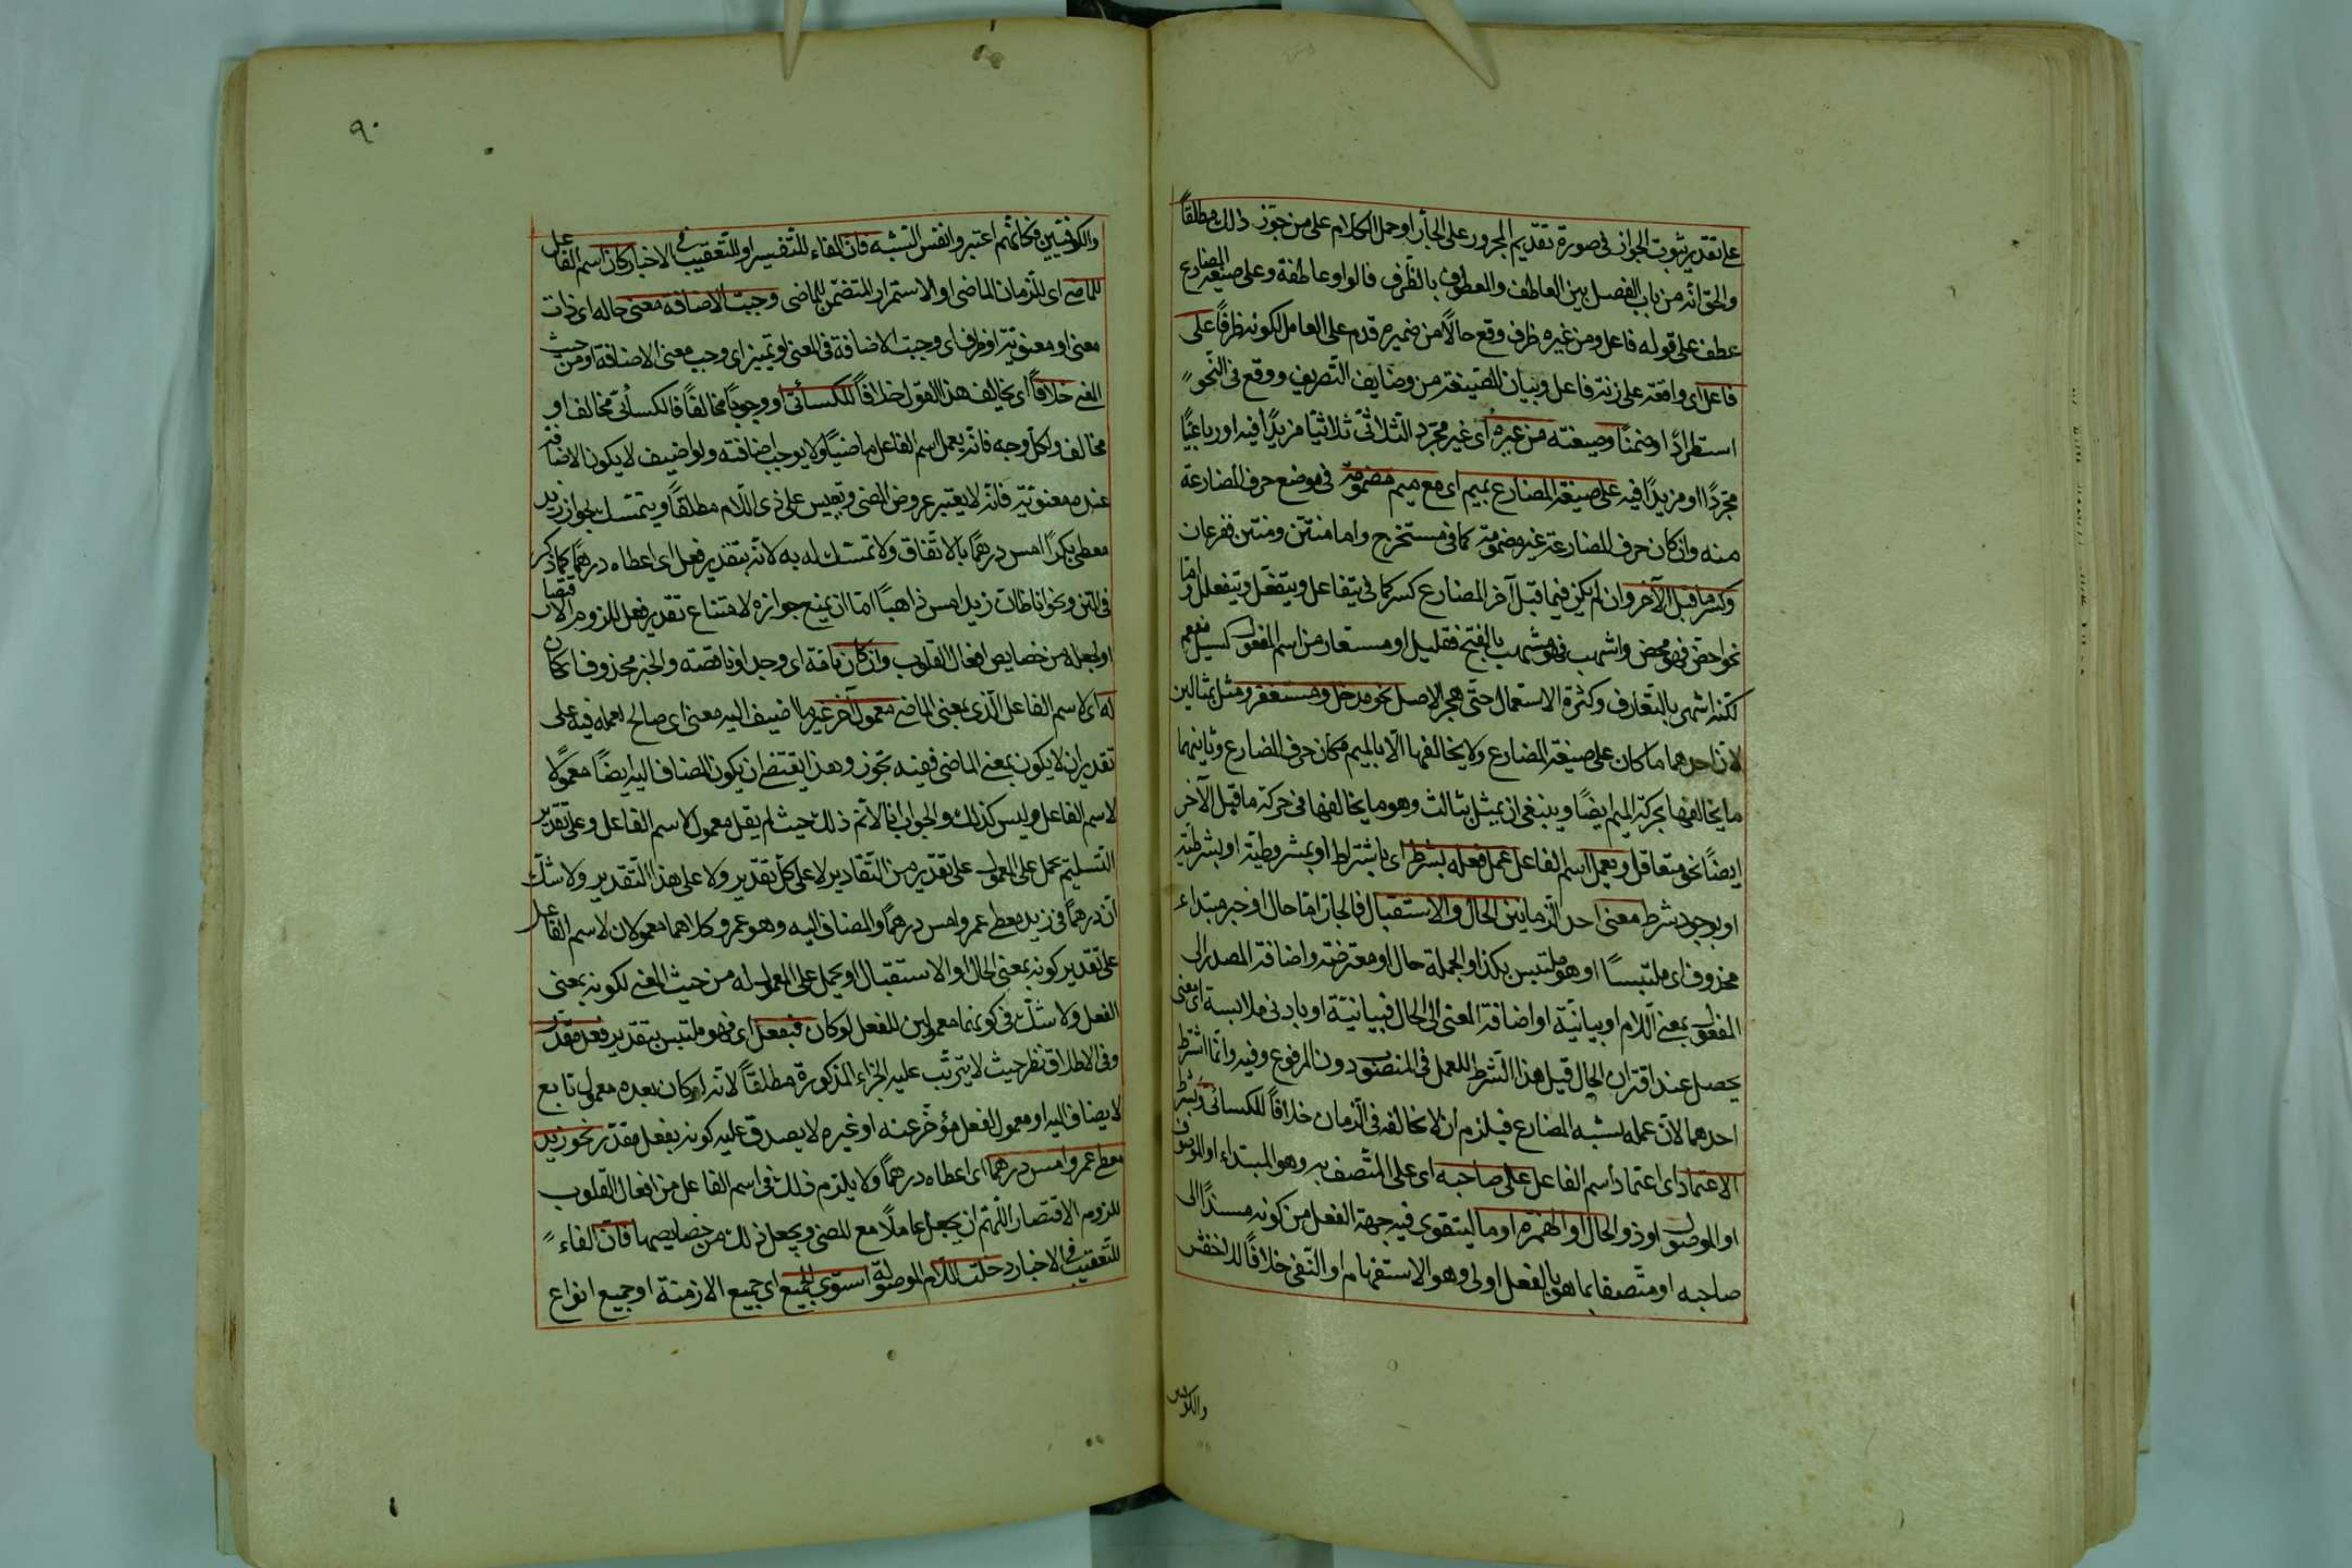 على تقدير ثبوت الجواز فى صورة تقديم المجرور على الجار او حمل الكلام على من جوّز ذلك مطلقاً
والحق انّه من باب الفصل بين العاطف والمعطوف بالظرف فالواو عاطفة وعلى صيغة المضارع
عطف على قوله فاعل ومن غيره ظرف وقع حالاً من ضميره قدم على العامل لكونه ظرفاً على
فاعل اى واقعة على زنة فاعل وبيان للصّيغة من وضايف التّصريف ووقع فى النّحو
استطرادًا او ضمنًا وصيغته من غيره اى غير مجرّد الثلاثى ثلاثيًا مزيدًا فيه او رباعيًّا
مجّردًا او مزيدًا فيه على صيغة المضارع بميم اى مع ميم مضمومة فى موضع حرف المضارعة
منه وان كان حرف المضارعة غير مضمومة كما فى مستخرج واما منتن ومنتن ففرعان
وكسر ما قبل الآخر وان لم يكن فيما قبل آخر المضارع كسر كما فى يتفاعل ويتفعّل ويتفعلل وامّا
نحو احتض فهو محض واشهب فهو مشهب بالفتح فقليل او مستعار من اسم المفعول كسيل مفعم
لكنه اشهر بالتعارف وكثرة الاستعمال حتى هجر الاصل نحو مدخل ومستغفر ومثل بمثالين
لان احدهما ما كان على صيغة المضارع ولا يخالفها الّا بالميم مكان حرف المضارع وثانيهما
ما يخالفها بحركة الميم ايضًا وينبغى ان يمثل بثالث وهو ما يخالفها فى حركة ما قبل الآخر
ايضًا نحو متعاقل ويعمل اسم الفاعل عمل فعله بشرط اى باشتراط او بمشروطية او بشرطيّة
او بوجود شرط معنى احد الزمانين الحال والاستقبال فالجار امّا حال او خبر مبتداء
محذوف اى ملتبسًا او هو ملتبس بكذا والجملة حال او معترضة واضافة المصدر الى
المفعول بمعنى اللام او بيانيّة او اضافة المعنى الى الحال فبيانيّة او بادنى ملابسة اى معنى
يحصل عند اقتران الحال قيل هذا الشّرط للعمل فى المنصوب دون المرفوع وفيه وانّما اشترط
احدهما لانّ عمله بشبه المضارع فيلزم ان لا يخالفه فى الزمان خلافاً للكسائى وبشرط
الاعتماد اى اعتماد اسم الفاعل على صاحبه اى على المتّصف به وهو المبتداء او الموصوف
او الموصول او ذو الحال او الهمزة او ما ليتقوى فيه جهة الفعل من كونه مسندًا الى
صاحبه او متّصفا بما هو بالفعل اولى وهو الاستفهام او النّفى خلافًا للاخفش
والكوفيين
٩٠
والكوفيّين فكانّهم اعتبروا نفس التشبه فان الفاء للتّفسير او للتّعقيب فى الاخبار كان اسم الفاعل
للماضى اى للزمان الماضى او الاستمرار المتضمّن للماضى وجبت الاضافة معنى حاله اى ذات
معنى او معنويّة او ظرف اى وجبت الاضافة فى المعنى او تميز اى وجب معنى الاضافة او من حيث
المعنى خلافاً اى يخالف هذا القول خلافاً للكسائى او وجوبًا مخالفًا فالكسائى مخالف او
مخالف ولكل وجه فانّه يعمل اسم الفاعل ماضيًا ولا يوجب اضافته ولو اضيف لا يكون الاضافة
عنده معنويّة فانّه لا يعتبر عروض المضى ويقيس على ذى اللّام مطلقاً ويتمسّك بجواز زيد
معطى بكرًا امس درهمًا بالاتّفاق ولا تمسّك له به لانّه بتقدير فعل اى اعطاه درهمًا كما ذكر
فى المتن ونحو انا ظان زيد امس ذاهبًا امّا ان يمنع جوازه لامتناع تقدير فعل للزوم الاقتصار
او بجعله من خصايص افعال القلوب وان كان تامّة اى وجد او ناقصة والخبر محذوف اى كان
له اى لاسم الفاعل الّذى بمعنى الماضى معمول آخر غير ما اضيف اليه معنى اى صالح لعمله فيه على
تقدير ان لا يكون بمعنى الماضى ففيه تجّوز وهذا يقتضى ان يكون المضاف اليه ايضًا معمولًا
لاسم الفاعل وليس كذلك والجواب انا لا نم ذلك حيث لم يقل معمول لاسم الفاعل وعلى تقدير
التّسليم يحمل على المعمول على تقدير من التّقادير لا على كلّ تقدير ولا على هذا التّقدير ولا شكّ
انّ درهمًا فى زيد معطى عمرو امس درهمًا والمضاف اليه وهو عمرو كلاهما معمولان لاسم الفاعل
على تقدير كونه بمعنى الحال او الاستقبال او يحمل على المعمول له من حيث المعنى لكونه بمعنى
الفعل ولا شكّ فى كونهما معمولين للفعل لو كان فبفعل اى فهو ملتبس بتقدير فعل مقدّر
وفى الاطلاق نظر حيث لا يترتّب عليه الجزاء المذكورة مطلقاً لانّه لو كان بعده معمول تابع
لا يضاف اليه او معمول الفعل مؤخّر عنه او غيره لا يصدق عليه كونه بفعل مقدّر نحو زيد
معطى عمرو امس درهمًا اى اعطاه درهمًا ولا يلزم ذلك فى اسم الفاعل من افعال القلوب
للزوم الاقتصار اللّهمّ ان يجعل عاملًا مع المضى ويجعل ذلك من خصايصها فان الفاء
للتّعقيب فى الاخبار دخلت اللّام الموصولة استوى الجميع اى جميع الازمنة او جميع انواع